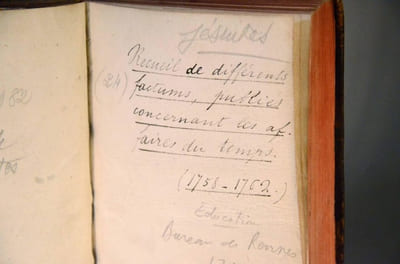 Jésuites
Recueil de différents
(24) factums, publiés
concernant les af-
faires du temps.
(1758-1762.)
Education
Bureau de Rennes